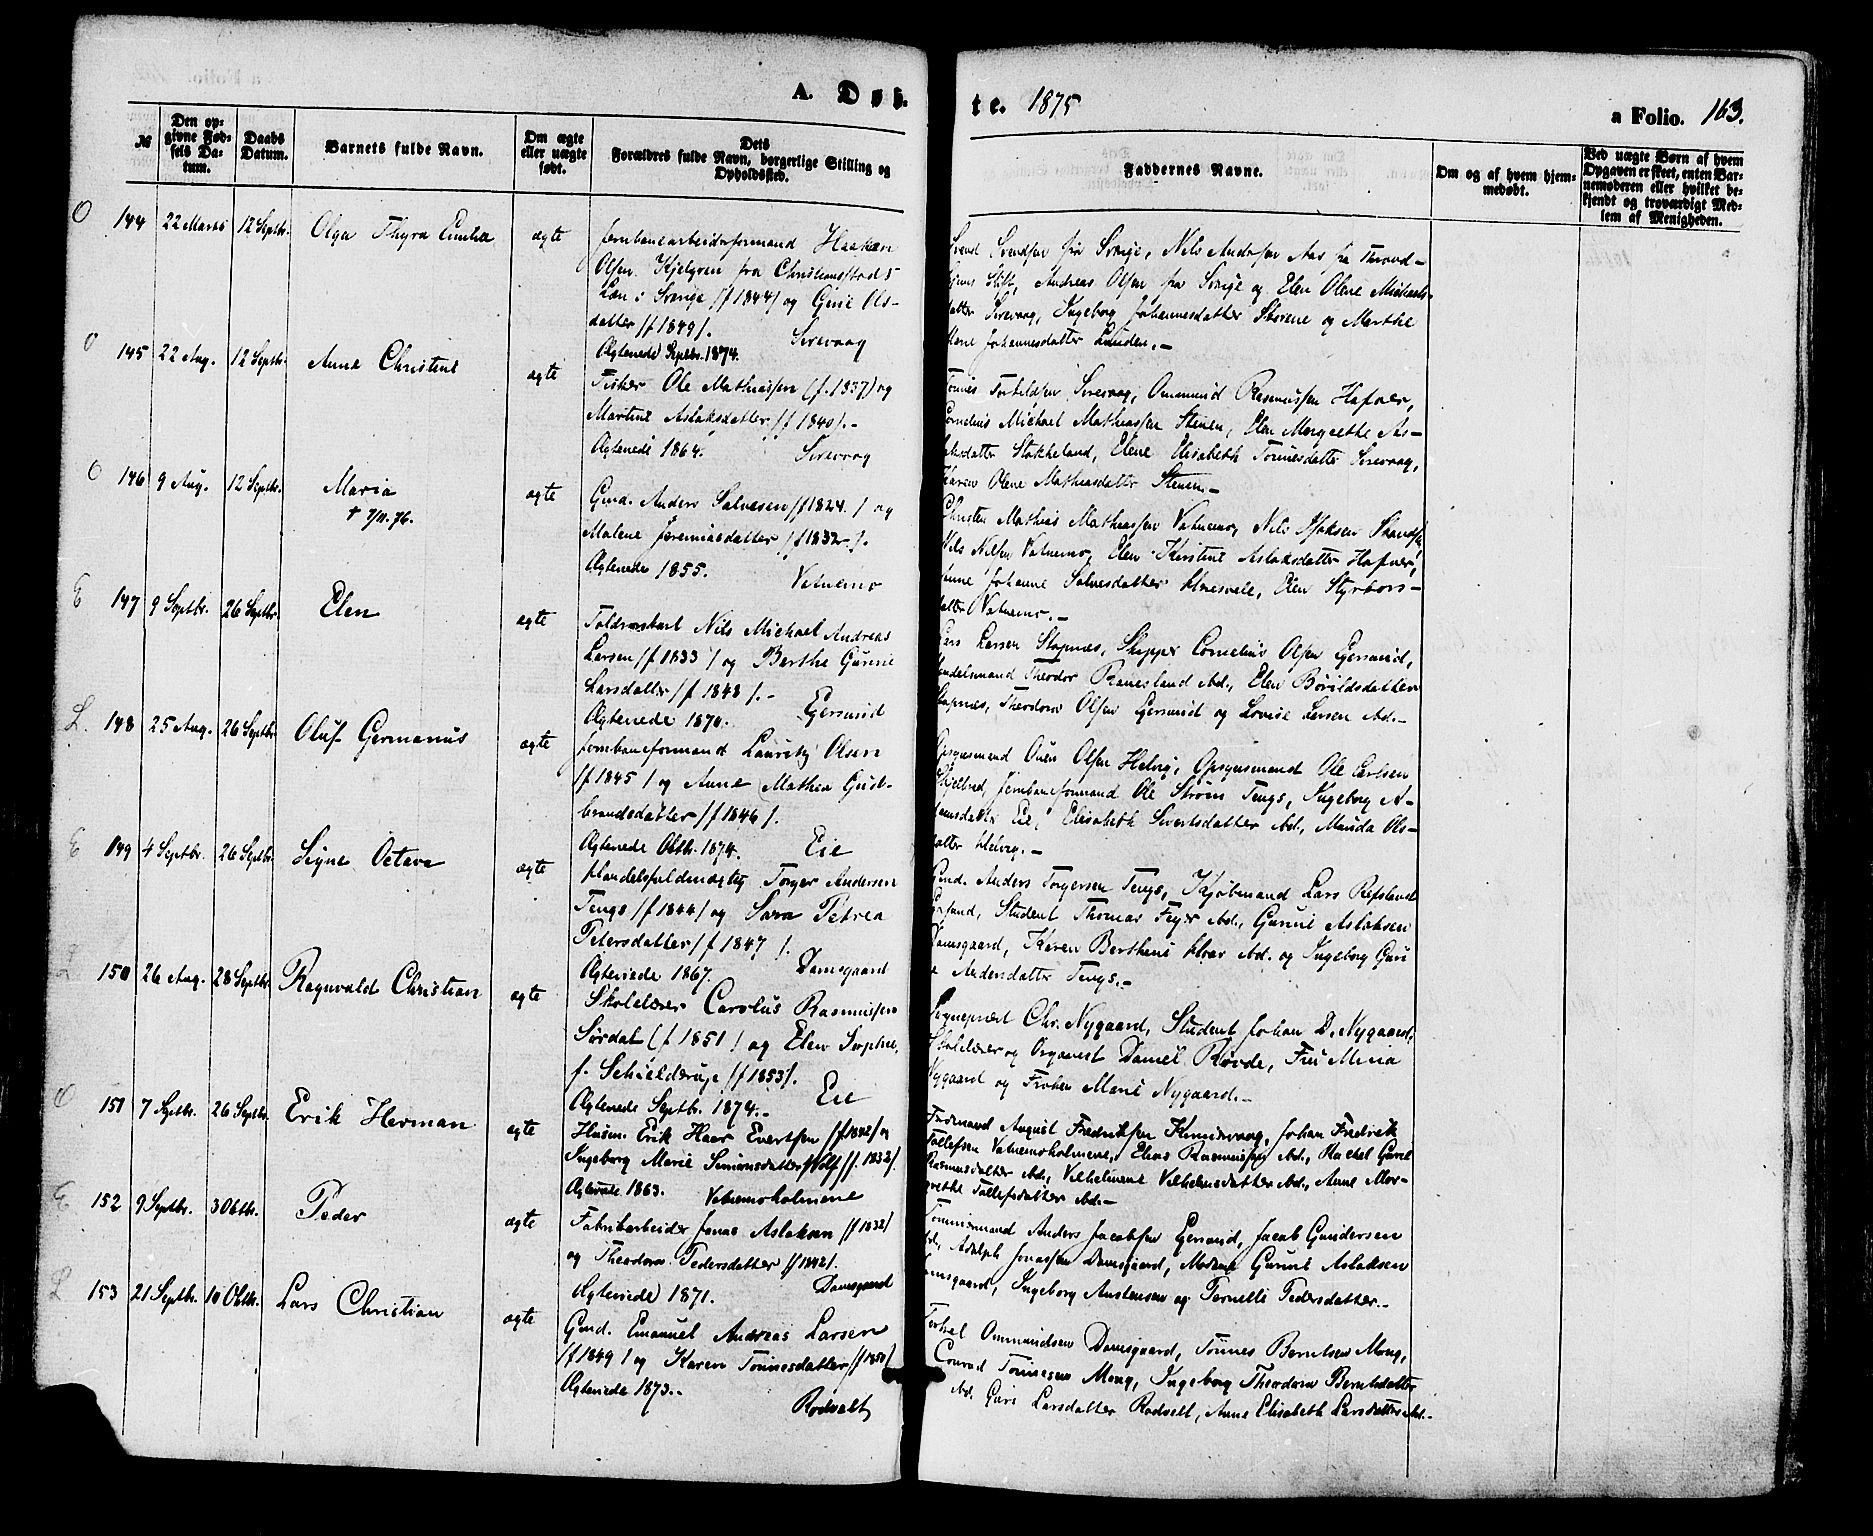 A. Døb-
te. 1875
a Folio. 163.
№
Den opgivne Fødsels Datum.
Daabs Datum.
Barnets fulde Navn.
Om ægte eller uægte født.
Dets Forældres fulde Navn, borgerlige Stilling og Opholdssted.
Faddernes Navne.
Om og af hvem hjemmedøbt.
Ved uægte Børn af hvem Opgaven er skeet, enten Barnemoderen eller hvilket bekjendt og troværdigt Medlem af Menigheden.
O 144 22 Marts 12 Septbr. Olga Thyra Emilia ægte
Jernbanearbeiderformand Haakan
Olsen Kjelgren fra Christiansstads
Län i Sverige /f 1844/ og Gurie Ols-
datter /f 1849/. Sirevaag
Ægteviede Septbr. 1874.
Svend Svendsen fra Sverige, Nils Andersen Aas fra Thrond-
hjems Stift, Andreas Olsen fra Sverige og Elen Olene Michaels-
datter Sirevaag, Ingeborg Johannesdatter Skorene og Marthe
Johannesdatter Lunden.-
O 145 22 Aug. 12 Septbr. Anna Christine ægte
Fisker Ole Mathiassen (f. 1837) og
Martine Aslaksdatter /f 1840/.-
Ægteviede 1864. Sirevaag
Tønnes Torkildsen Sirevaag, Ommund Rasmussen Hafner,
Cornelius Michael Mathiassen Stenen, Elen Margrethe As-
laksdatter Stokkeland, Elene Elisabeth Tonnesdatter Sirevaag,
Karen Olene Mathiasdatter Stenen.-
O 146 9 Aug. 12 Septbr. Maria ægte
† 7/11. 76.
Gmd. Anders Salvesen /f 1824./ og
Malene Jeremiasdatter /f 1832/.
Ægteviede 1855. Vatnemo
Christen Mathias Mathiassen Vatnemo, Nils
Nils Nilsen Vatnemo, Elen Kirstine Aslaksdatter Hafner,
Anne Johanne Salvesdatter
datter Vatnemo.-
E 147 9 Septbr. 26 Septbr. Elen ægte
Nils Michael Andreas
Larsen /f 1833/ og Berthe Gurine
Larsdatter /f 1843/.-
Ægteviede 1870. Egersund
Lars Larsen Stapnæs, Skipper Cornelius Olsen Egersund,
Handelsmand Theodor Ranesland ibd., Elen Bovildsdatter
Stapnæs, Theodora Olsen Egersund og Lovise Larsen ibd.-
L. 148 25 Aug. 26 Septbr. Oluf Germanus ægte
Jernbaneformand Lauritz Olsen
/f 1845/ og Anne Mathea Gud-
brandsdatter /f 1846/.
Ægteviede Oktb. 1874. Eie
Opsynsmand Ouen Olsen Helvig, Opsynsmand Ole Carlsen
Jernbaneformand Ole Strøm Tengs, Ingeborg A-
damsdatter Eie, Elisabeth Sivertsdatter ibd., Manda Ols-
datter Helvig.-
E 149 4 Septbr. 26 Septbr. Signe Octava ægte
Handelsfuldmægtig Torger Andersen
Tengs /f 1844/ og Sara Petrea
Petersdatter /f 1847/.
Ægteviede 1867. Damsgaard
Gmd. Anders Torgersen Tengs, Kjøbmand Lars Refsland
Egersund, Student Thomas Feyer ibd., Gurine Aslaksen
Damsgaard, Karen Berthine Hoar ibd. og Ingeborg Guri
Andersdatter Tengs.-
L 150 26 Aug. 28 Septbr. Ragnvald Christian ægte
Skolelærer Carolus Rasmussen
Sørdal (f 1851/ og Elen Sophie,
f. Schielderup /f 1853/.
Ægteviede Septbr. 1874.- Eie
Sognepræst Chr. Nygaard, Student Johan D. Nygaard,
Skolelærer og Organist Daniel Rovde, Fru Mina
Nygaard og Frøken Marie Nygaard.-
O 151 7 Septbr. 26 Septbr. Erik Herman ægte
Husm. Erik Haar Evertsen /f 1842/ og
Ingeborg Marie Simonsdatter Wolf /f. 1832/.
Ægteviede 1863. Vatnemoholmene
Ferdinand August Fredriksen Johan Fredrik
Tollefsen Vatnemoholmene, Elias Rasmussen ibd., Rachel Gurel
Rasmusdatter ibd., Vilhelmine Vilhelmsdatter ibd., Anne Mar-
grethe Tollefsdatter ibd.-
E 152 9 Septbr. 3 Oktbr. Peder ægte
Fabrikarbeider Jonas Aslaksen /f 1832/
og Theodora Pedersdatter /f 1842/.
Ægteviede 1871. Damsgaard
Tømmermand Anders Jacobsen Egersund, Jacob Gundersen
ibd., Adolph Jonassen Damsgaard, Madam Gurine Aslaksen
Damsgaard, Ingeborg Austensen og Pernelle Pedersdatter.-
L 153 21 Septbr. 10 Oktbr. Lars Christian ægte
Gmd. Emanuel Andreas Larsen
/f 1849/ og Karen Tønnesdatter /f 1850/
Ægteviede 1873.-
Rodvelt
Torkel Ommundsen Damsgaard, Tønnes Berntsen Mong,
Conrad Tønnesen Mong, Ingeborg Theodora Berntsdatter
ibd. Guri Larsdatter Rodvelt, Anne Elisabeth Larsdatter ibd.-